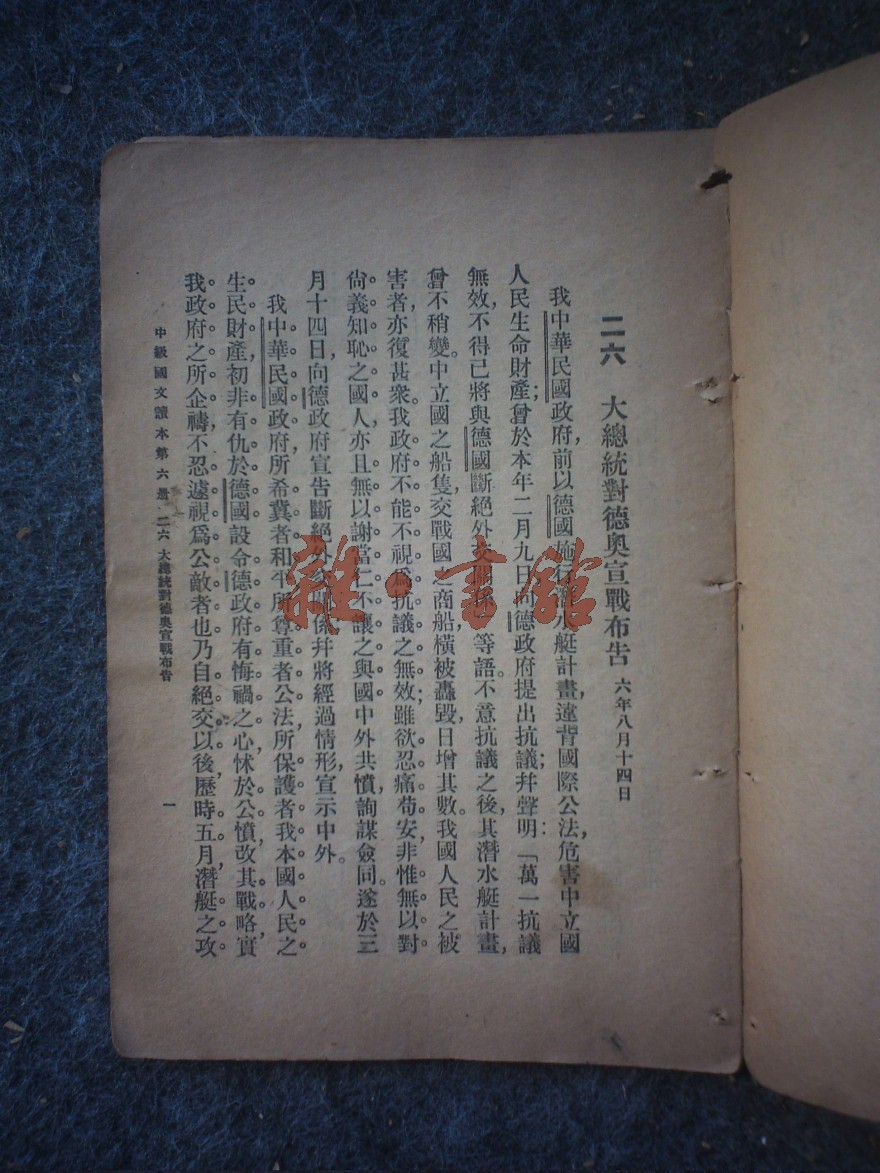 二六 大總統對德奧宣戰布告 六年八月十四日
我中華民國政府，前以德國施行潛水艇計畫，違背國際公法，危害中立國
人民生命財產；曾於本年二月九日向德政府提出抗議；并聲明：「萬一抗議
無效，不得已將與德國斷絕外交關係」等語。不意抗議之後，其潛水艇計畫，
曾不稍變。中立國之船隻，交戰國之商船，橫被轟毀，日增其數。我國人民之被
害者，亦復甚衆。我政府不能不視爲抗議之無效；雖欲忍痛苟安，非惟無以對
尙義知恥之國人，亦且無以謝當仁不讓之與國。中外共憤，詢謀僉同。遂於三
月十四日，向德政府宣告斷絕外交關係，幷將經過情形，宣示中外。
我中華民國政府所希冀者和平，所尊重者公法，所保護者我本國人民之
生民財產，初非有仇於德國。設令德政府有悔禍之心，怵於公憤，改其戰略，實
我政府之所企禱，不忍遽視爲公敵者也。乃自絕交以後，歷時五月，潛艇之攻
中級國文讀本第六册 二六 大總統對德奧宣戰布告 一
雜·書館